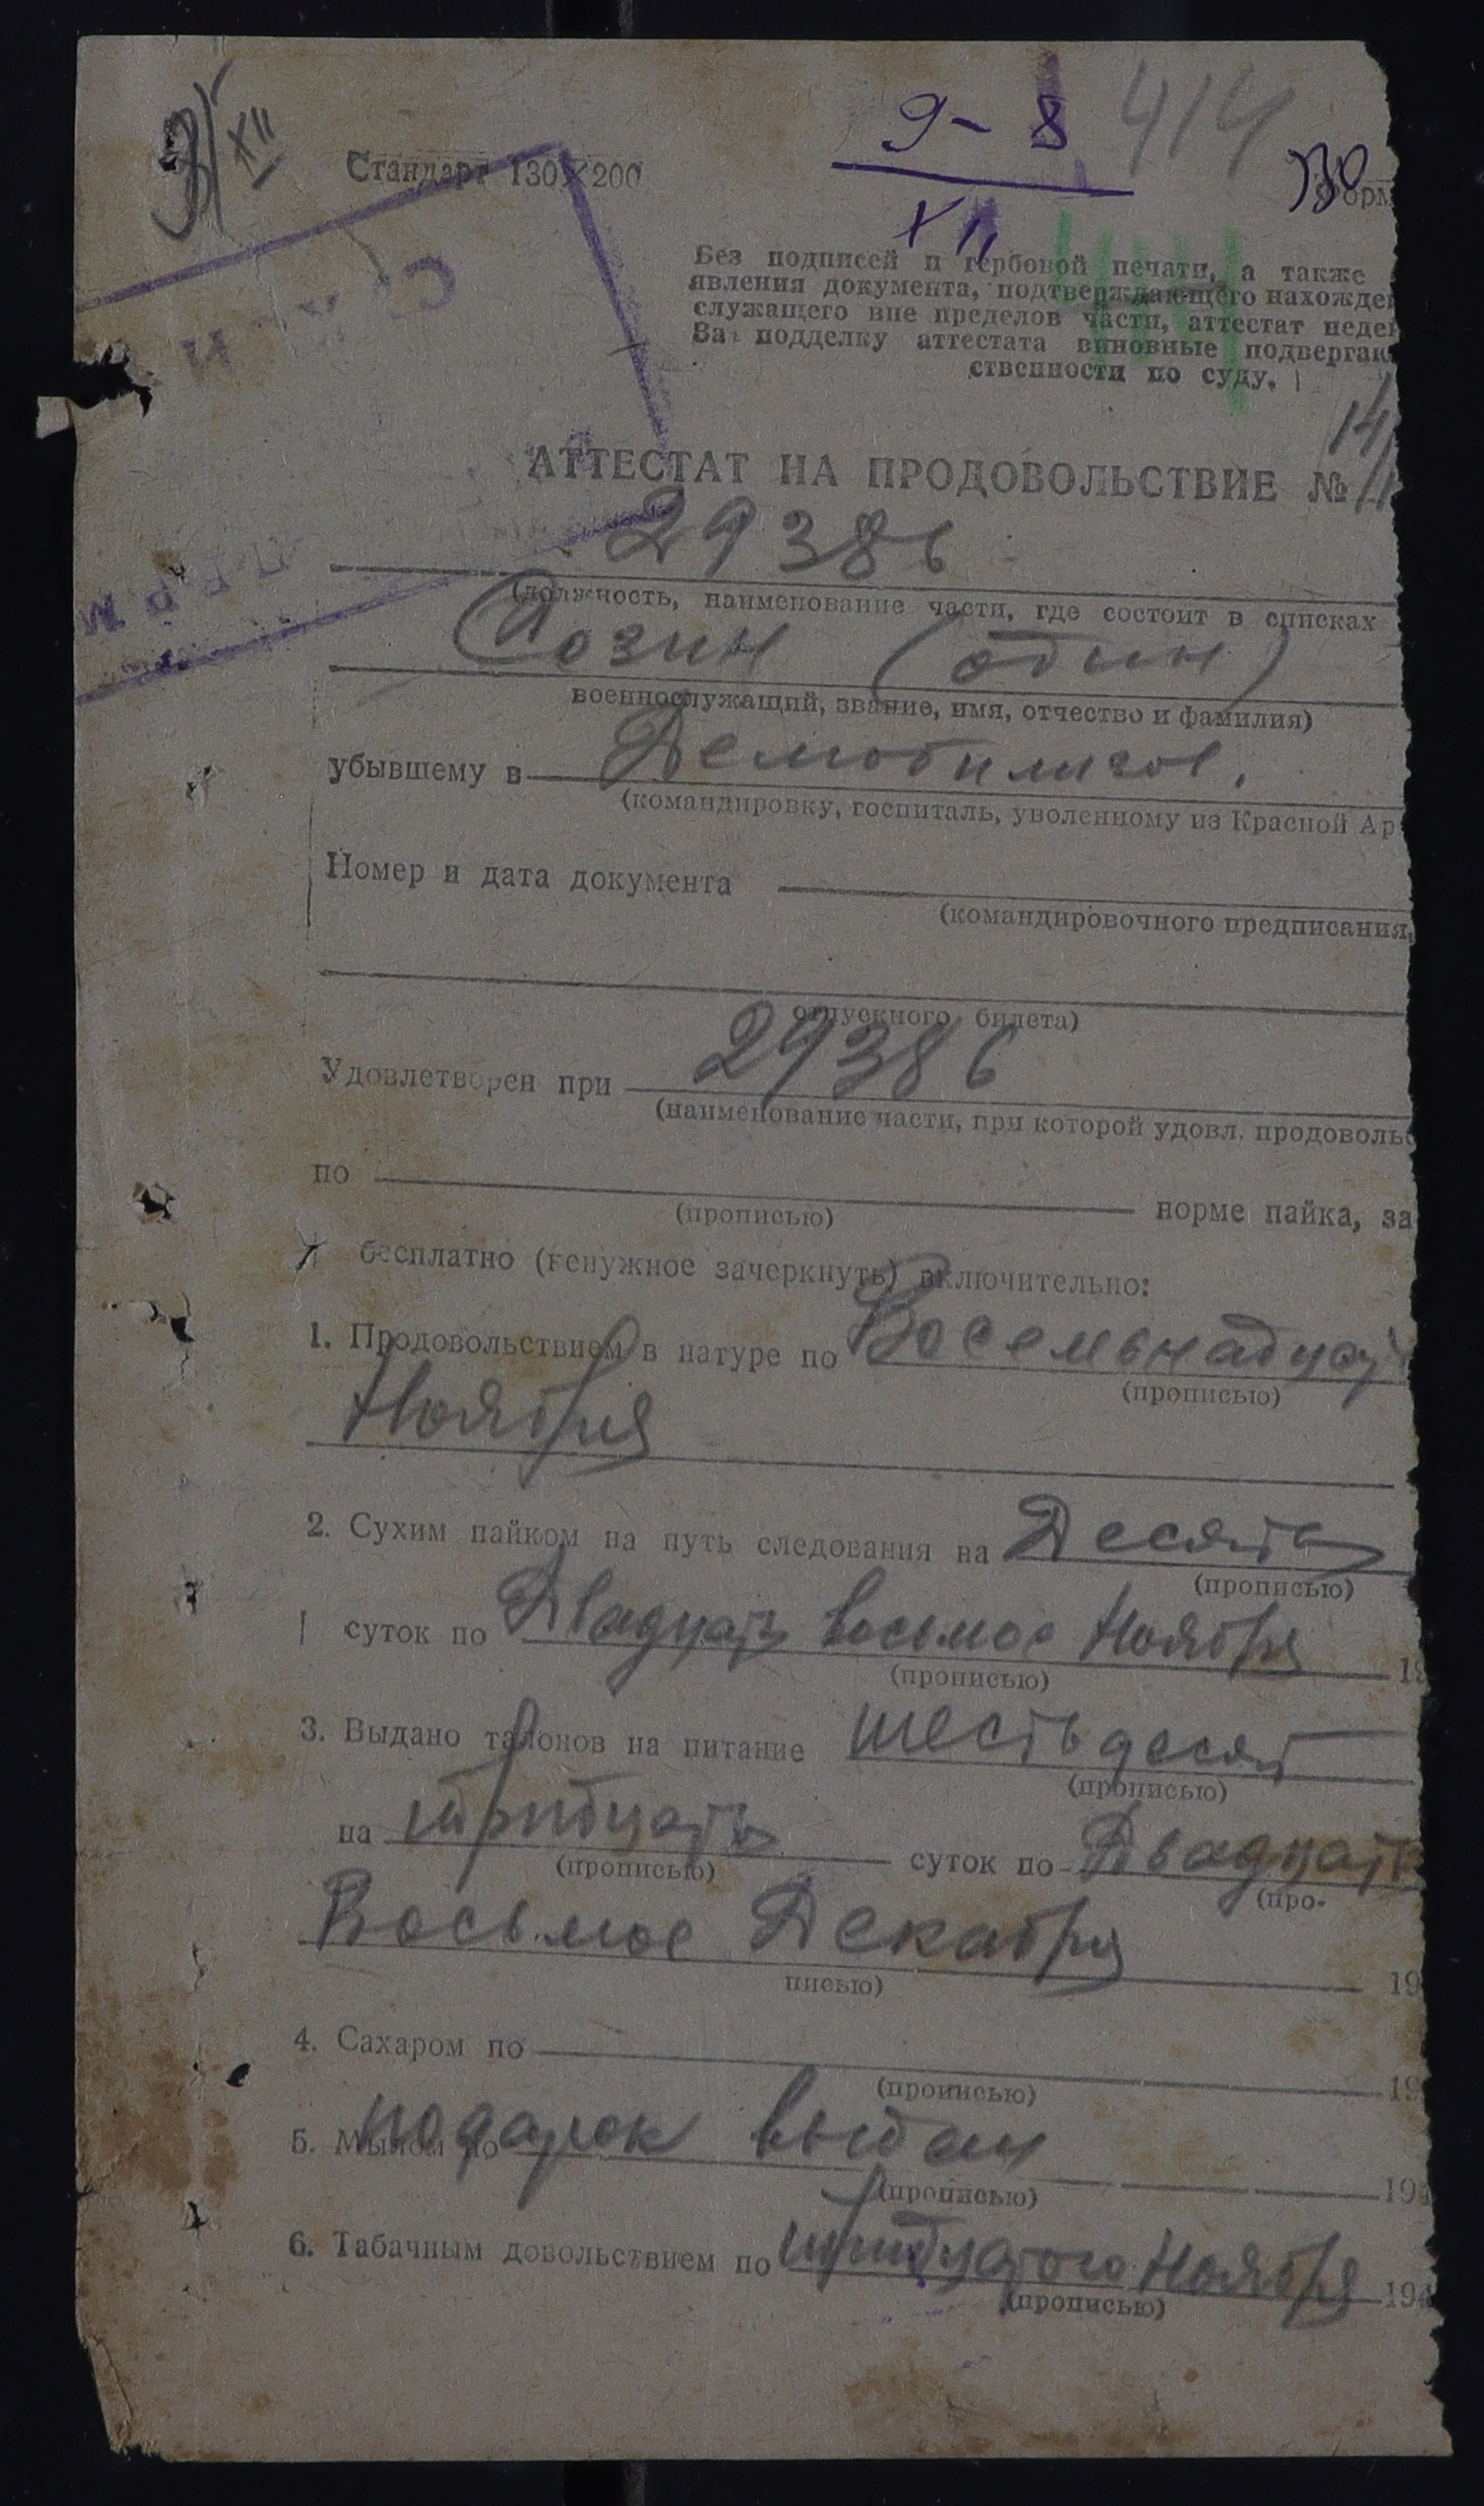 3/XII
9-8 414
Стандарт 130×200 Форм
XII
Без подписей и гербовой печати, а также
явления документа, подтверждающего нахожде
служащего вне пределов части, аттестат неде
За подделку аттестата виновные подверга
ственности по суду.
АТТЕСТАТ НА ПРОДОВОЛЬСТВИЕ №
29386
(должность, наименование части, где состоит в списках
Созин (один)
военнослужащий, звание, имя, отчество и фамилия)
убывшему в Демобилизов.
(командировку, госпиталь, уволенному из Красной Ар
Номер и дата документа
(командировочного предписания,
отпускного билета)
Удовлетворен при 29386
(наименование части, при которой удовл. продоволь
по норме пайка, за
(прописью)
бесплатно (ненужное зачеркнуть) включительно:
1. Продовольствием в натуре по Восемьнадцат
(прописью)
Ноября
2. Сухим пайком на путь следования на Десять
(прописью)
суток по Двадцать восьмое Ноября 19
(прописью)
3. Выдано талонов на питание шестьдесят
(прописью)
на тридцать суток по Двадцать
(прописью) (про-
Восьмое Декабря 19
писью)
4. Сахаром по 19
(прописью)
подарок выдан
5. Мылом по 194
(прописью)
6. Табачным довольствием по тридцатого Ноября 194
(прописью)